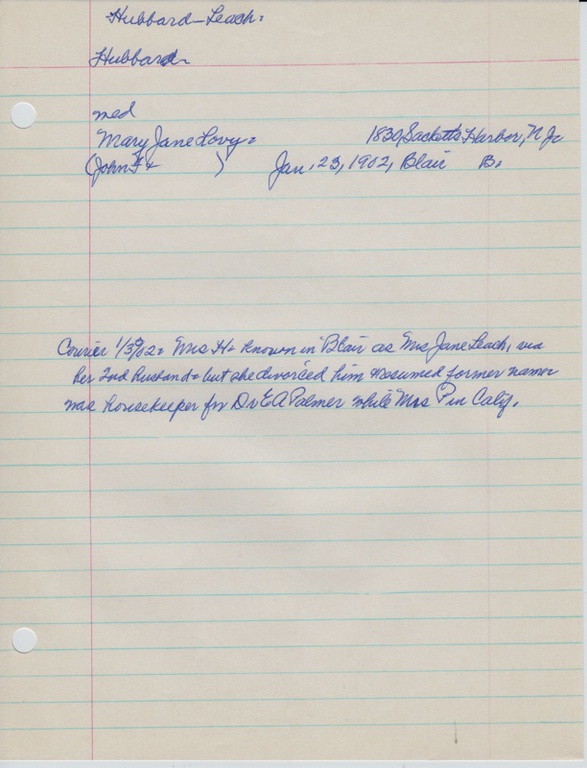 Hubbard-Leach.
Hubbard
med
Mary Jane Lovy. 1830, Sacketts Harbor, N.Y.
(John F & ) Jan. 23, 1902, Blair B.
Courier 1/30/02. Mrs H. known in Blair as Mrs Jane Leach, via
her 2nd husband. but she divorced him & assumed former name.
was housekeeper for Dr E A Palmer while Mrs P in Calif.